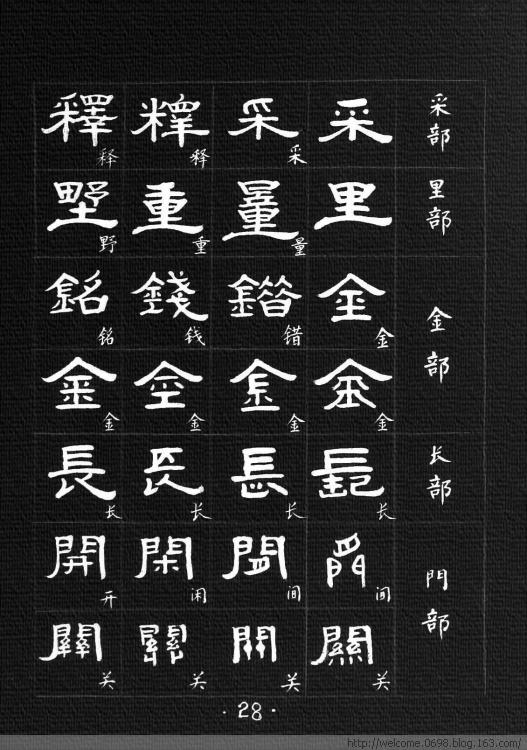 采部
采 采采 釋释 釋释
里部
里 量量 重重 野野
金部
金金 錯错 錢钱 銘铭
金金 金金 金金 金金
长部
長长 長长 長长 長长
門部
間间 間间 閑闲 開开
關关 關关 關关 關关
·28·
http://welcome.0698.blog.163.com/